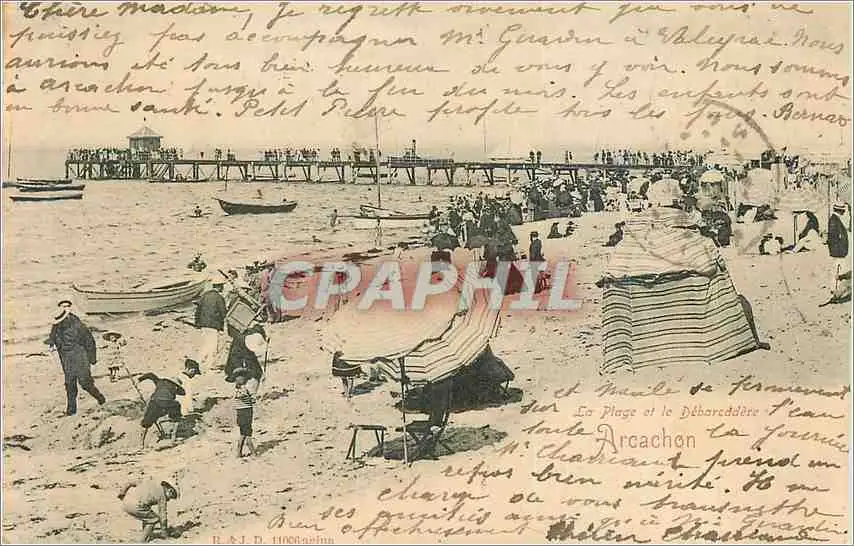 Chère Madame, Je regrette vivement que vous ne
puissiez pas accompagner Mr. Guardin à Valeyrac. Nous
aurions été tous bien heureux de vous y voir. Nous sommes
à Arcachon jusqu'à la fin du mois. Les enfants sont
en bonne santé. Petit Pierre profite tous les jours. Bernard
CAPHIL
et Mlle se promènent
La Plage et le Débarcadère
sur l'eau
Arcachon
toute la journée
Mr. prend un
repos bien mérité. Il me
charge de vous transmettre
ses amitiés ainsi qu'à
Bien affectueusement Hélène
R. & J. D. 11006